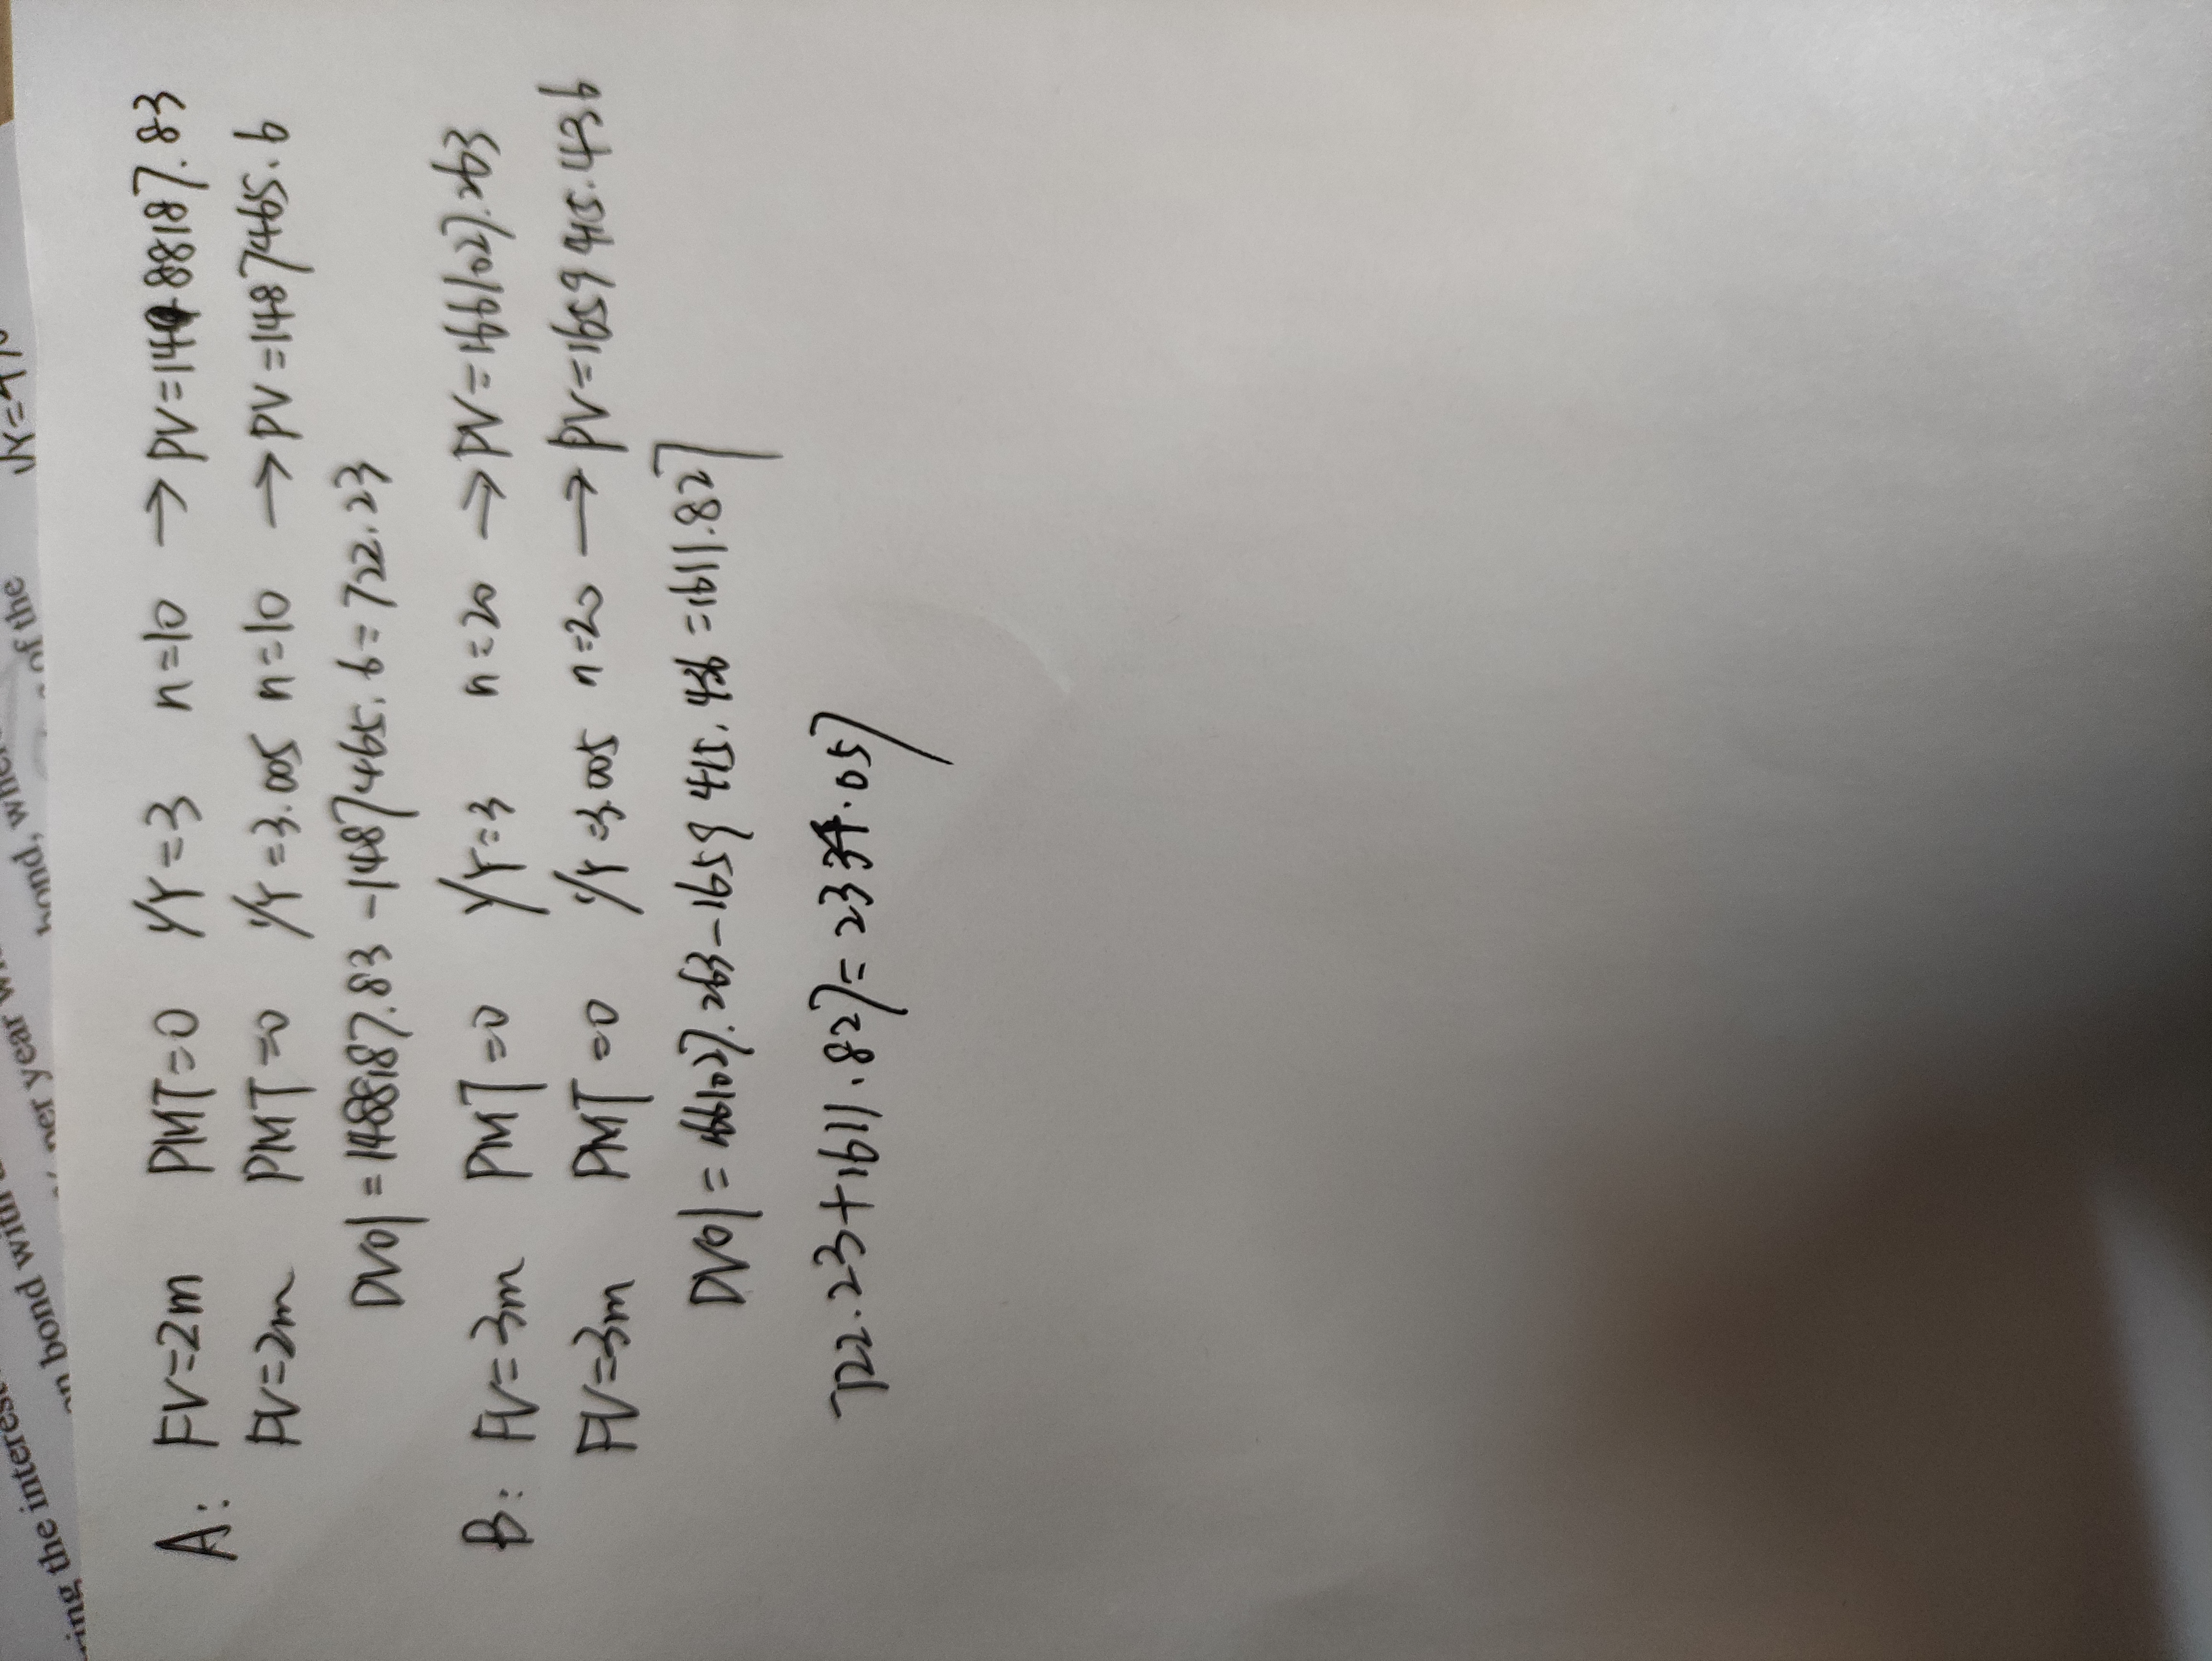 ring the interes
on bond with
per year w
bond, whic
of the
A: FV=2m PMT=0 I/Y=3 n=10 → PV=1488187.83
FV=2m PMT=0 I/Y=3.005 n=10 → PV=1487465.6
DV01=1488187.83-1487465.6=722.23
B: FV=3m PMT=0 I/Y=3 n=20 → PV=1661027.263
FV=3m PMT=0 I/Y=3.005 n=20 → PV=1659415.436
DV01=1661027.263-1659415.436=1611.827
722.23+1611.827=2334.057